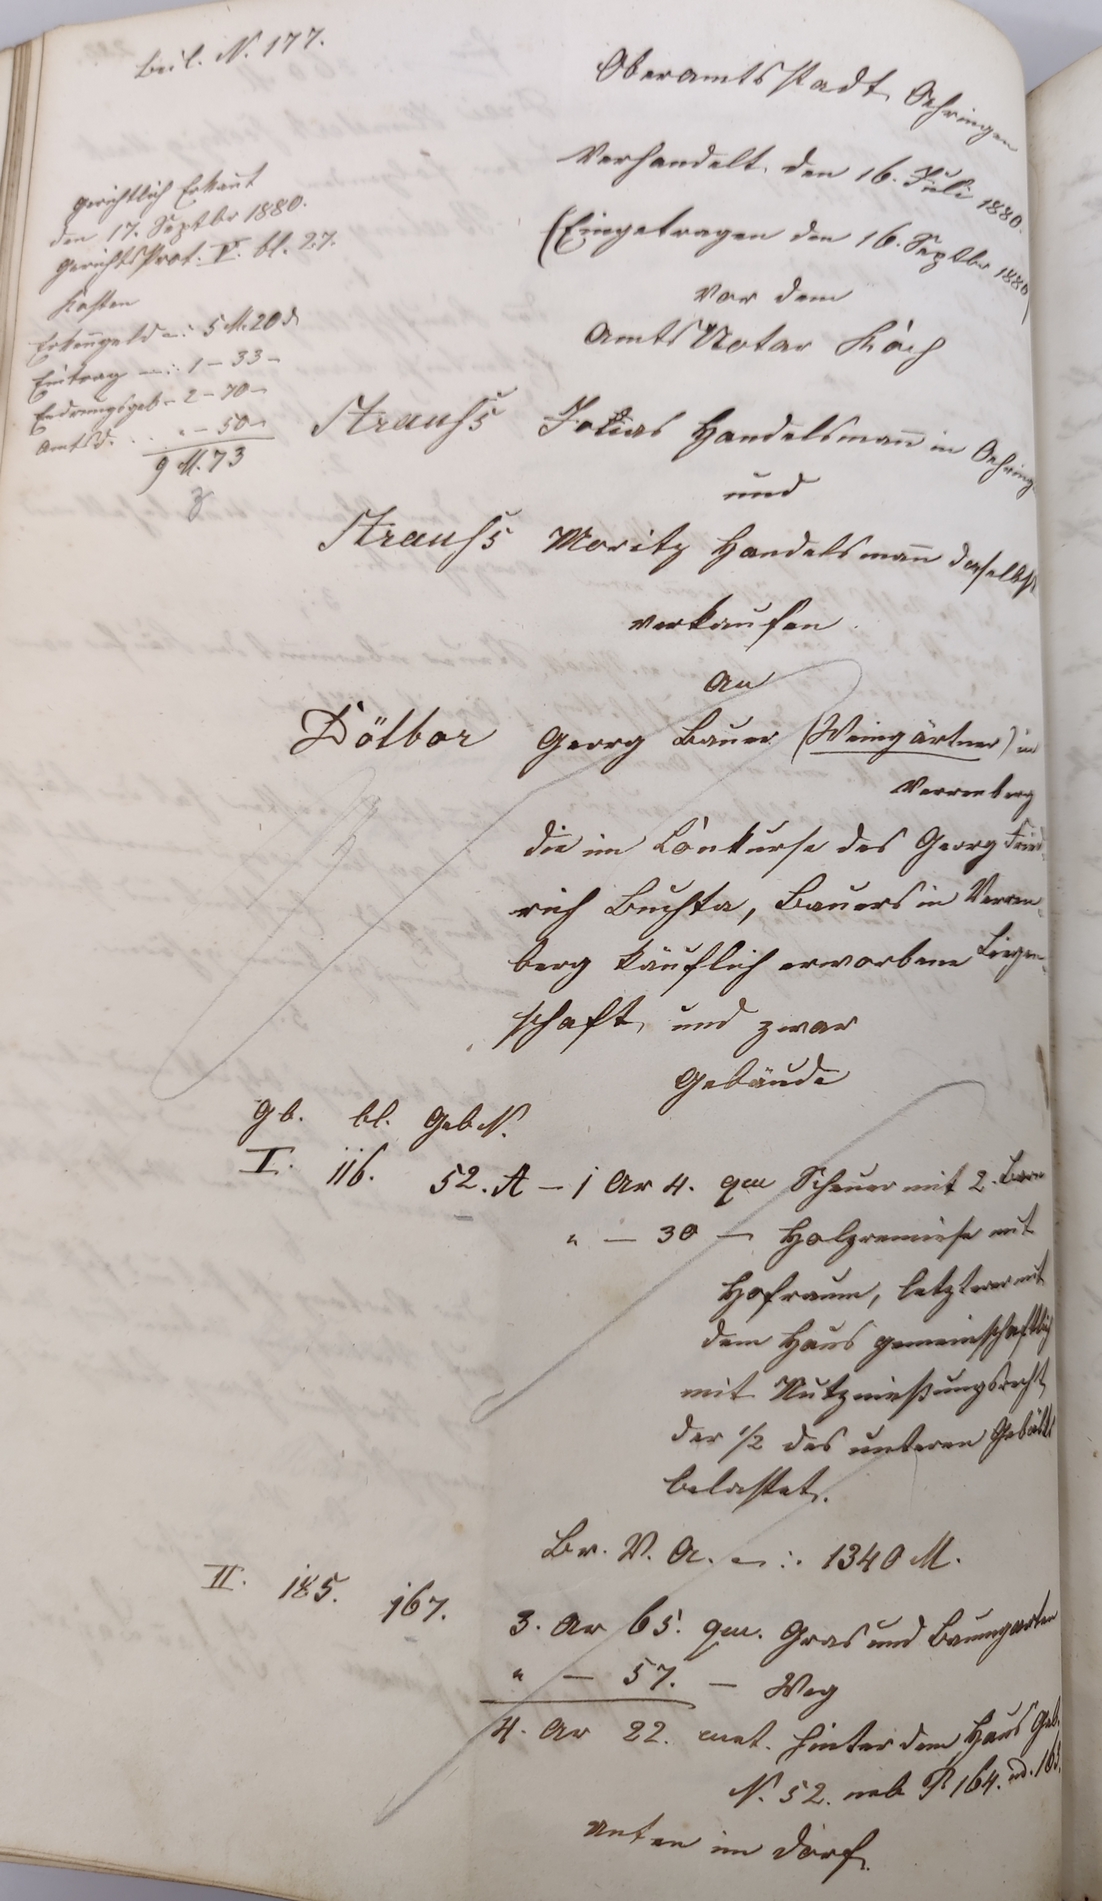 Beil. N. 177.
Oberamtsstadt Oehringen
Verhandelt den 16. Juli 1880.
(Eingetragen den 16. Septbr 1880)
vor dem
Amts Notar Koch
gerichtlich Erkannt
den 17. Septbr 1880.
Gerichts Prot. V. bl. 27.
Kosten
Erkenngeld –: 5 M. 20 d
Eintrag –: 1 – 33 –
– 2 – 70 –
Amtsd. . . „ – 50 –
9 M. 73
Strauss Tobias Handelsmann in Oehring.
und
Strauss Moritz Handelsmann daselbst
verkaufen
an
Georg Bauer (Weingärtner) in
Verrenberg
die im Konkurse des Georg Fried-
rich Buchta, Bauers in Verren-
berg käuflich erworbene Liegen-
schaft, und zwar
Gebäude
Gb. bl. Geb. N.
I. 116. 52. A – 1 Ar 4. qm Scheuer mit 2. Barn
„ – 30 – Holzremise mit
Hofraum, letzterer mit
dem Haus gemeinschaftlich
mit Nutznießungsrecht
der 1/2 des unteren Gebälks
belastet.
Br. V. A. –:. 1340 M.
II. 185. 167. 3. Ar 65. qm. Gras und Baumgarten
„ – 57. – Weg
4. Ar 22. met. hinter dem Haus Geb.
N. 52. neb. P. 164. und. 163.
unten im Dorf.